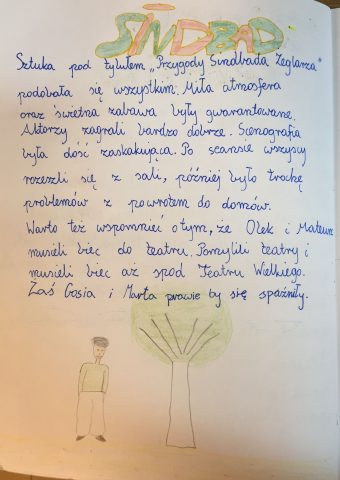 SINDBAD
Sztuka pod tytułem „Przygody Sindbada Żeglarza"
podobała się wszystkim. Miła atmosfera
oraz świetna zabawa były gwarantowane.
Aktorzy zagrali bardzo dobrze. Scenografia
była dość zaskakująca. Po scansie wszyscy
rozeszli się z sali, później było trochę
problemów z powrotem do domów.
Warto też wspomnieć o tym, że Olek i Mateusz
musieli biec do teatru. Pomylili teatry i
musieli biec aż spod Teatru Wielkiego.
Zaś Gosia i Marta prawie by się spóźniły.